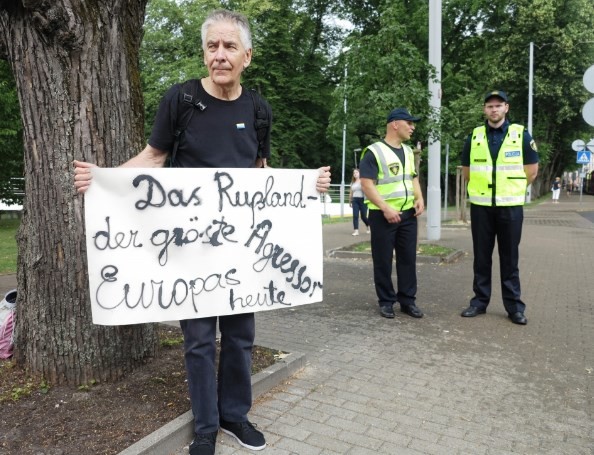 Das Rußland-
der gröste Agressor
Europas heute